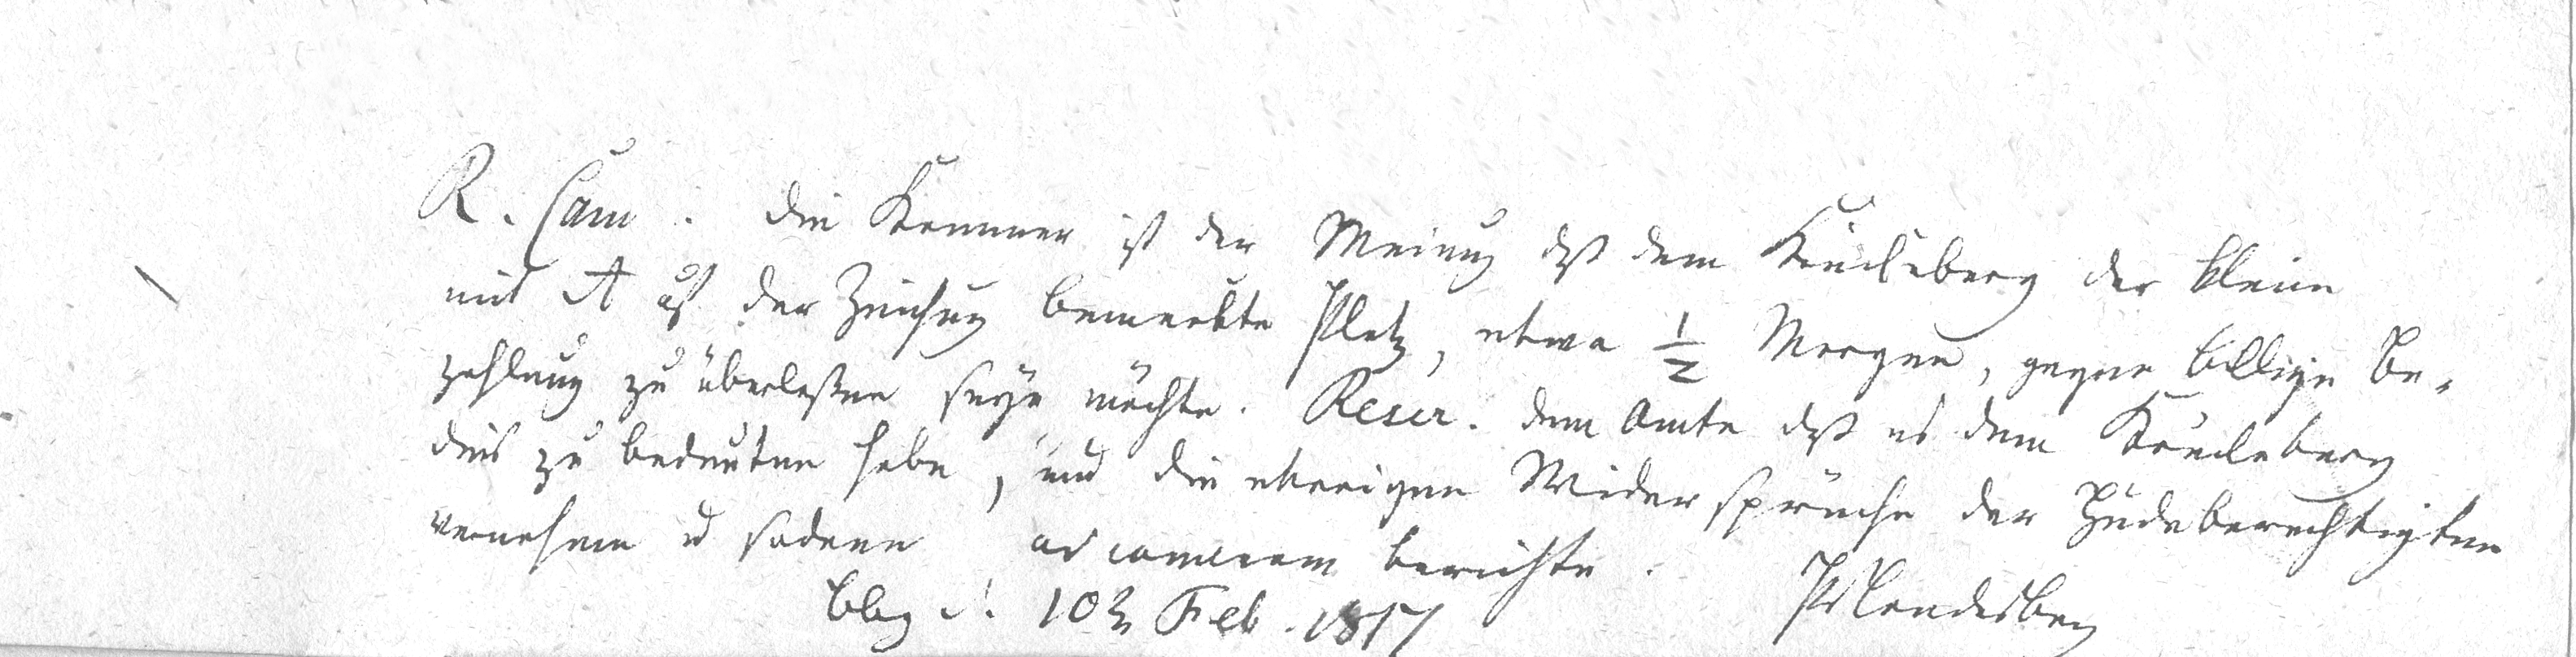 R. Cam. die Kammer ist der Meinung daß dem Kündeberg der kleine
mit A auf der Zeichung bemerkte Platz, etwa 1/2 Morgen, gegen billige Be-
zahlung zu überlaßen seyn möchte. Rescr. dem Amte daß es dem Kündeberg
dies zu bedeuten habe, und die etwaigen Widersprüche der Hudeberechtigten
vernehme u sodann ad cameram berichte.
Bbg d. 10n Feb. 1817